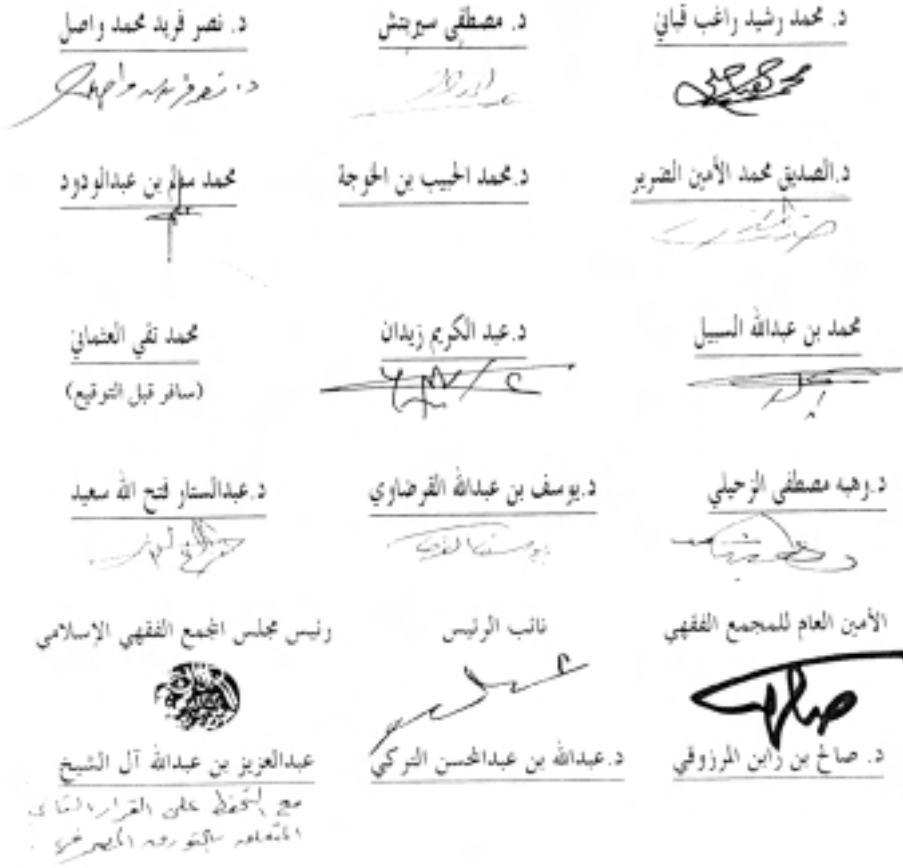 د. محمد رشيد راغب قباني
د. مصطفى سيريتش
د. نصر فريد محمد واصل
د. نصر فريد واصل
د.الصديق محمد الأمين الضرير
د.محمد الحبيب بن الخوجة
محمد سالم بن عبدالودود
محمد بن عبدالله السبيل
د.عبد الكريم زيدان
محمد تقي العثماني
(سافر قبل التوقيع)
د.وهبه مصطفى الزحيلي
د.يوسف بن عبدالله القرضاوي
د.عبدالستار فتح الله سعيد
الأمين العام للمجمع الفقهي
نائب الرئيس
رئيس مجلس المجمع الفقهي الإسلامي
د. صالح بن زابن المرزوقي
د.عبدالله بن عبدالمحسن التركي
عبدالعزيز بن عبدالله آل الشيخ
مع التحفظ على القرار الثاني
المتعلق بالتورق المصرفي